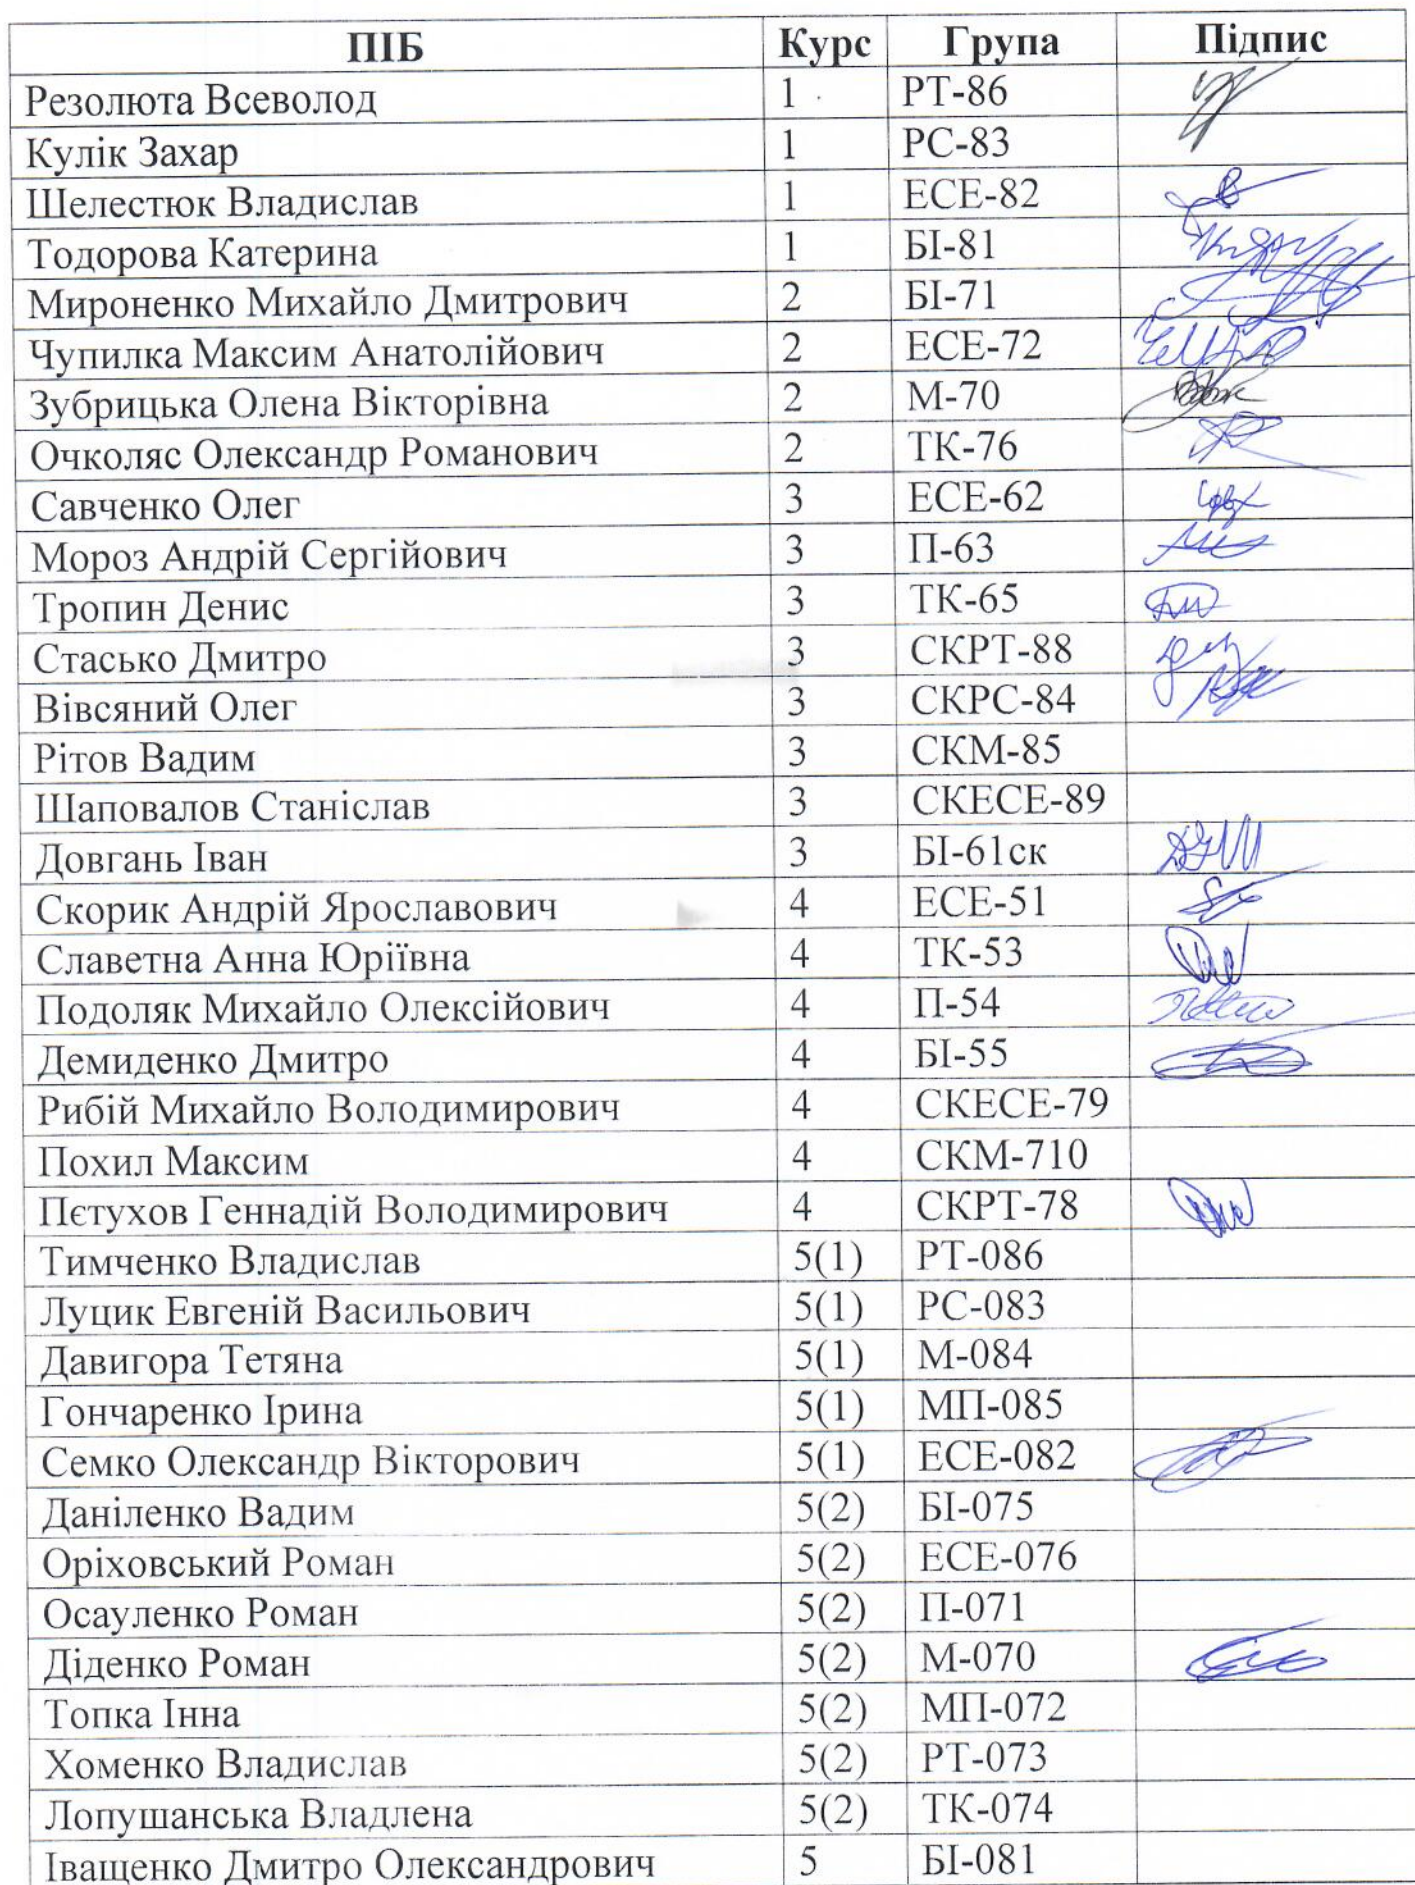 ПІБ Курс Група Підпис
Резолюта Всеволод 1 РТ-86
Кулік Захар 1 РС-83
Шелестюк Владислав 1 ЕСЕ-82
Тодорова Катерина 1 БІ-81
Мироненко Михайло Дмитрович 2 БІ-71
Чупилка Максим Анатолійович 2 ЕСЕ-72
Зубрицька Олена Вікторівна 2 М-70
Очколяс Олександр Романович 2 ТК-76
Савченко Олег 3 ЕСЕ-62
Мороз Андрій Сергійович 3 П-63
Тропин Денис 3 ТК-65
Стасько Дмитро 3 СКРТ-88
Вівсяний Олег 3 СКРС-84
Рітов Вадим 3 СКМ-85
Шаповалов Станіслав 3 СКЕСЕ-89
Довгань Іван 3 БІ-61ск
Скорик Андрій Ярославович 4 ЕСЕ-51
Славетна Анна Юріївна 4 ТК-53
Подоляк Михайло Олексійович 4 П-54
Демиденко Дмитро 4 БІ-55
Рибій Михайло Володимирович 4 СКЕСЕ-79
Похил Максим 4 СКМ-710
Пєтухов Геннадій Володимирович 4 СКРТ-78
Тимченко Владислав 5(1) РТ-086
Луцик Евгеній Васильович 5(1) РС-083
Давигора Тетяна 5(1) М-084
Гончаренко Ірина 5(1) МП-085
Семко Олександр Вікторович 5(1) ЕСЕ-082
Даніленко Вадим 5(2) БІ-075
Оріховський Роман 5(2) ЕСЕ-076
Осауленко Роман 5(2) П-071
Діденко Роман 5(2) М-070
Топка Інна 5(2) МП-072
Хоменко Владислав 5(2) РТ-073
Лопушанська Владлена 5(2) ТК-074
Іващенко Дмитро Олександрович 5 БІ-081